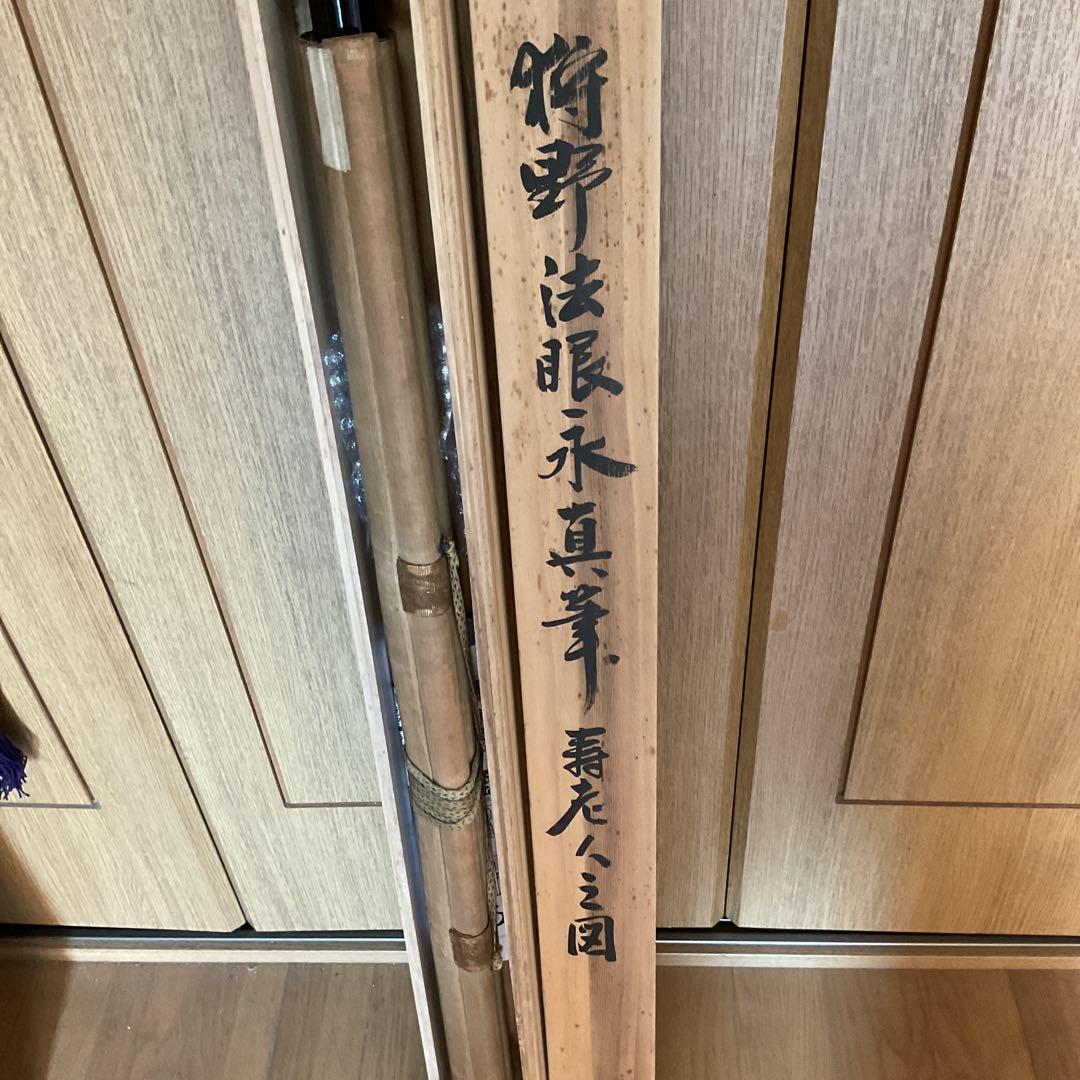 狩野法眼永真筆 寿老人之図